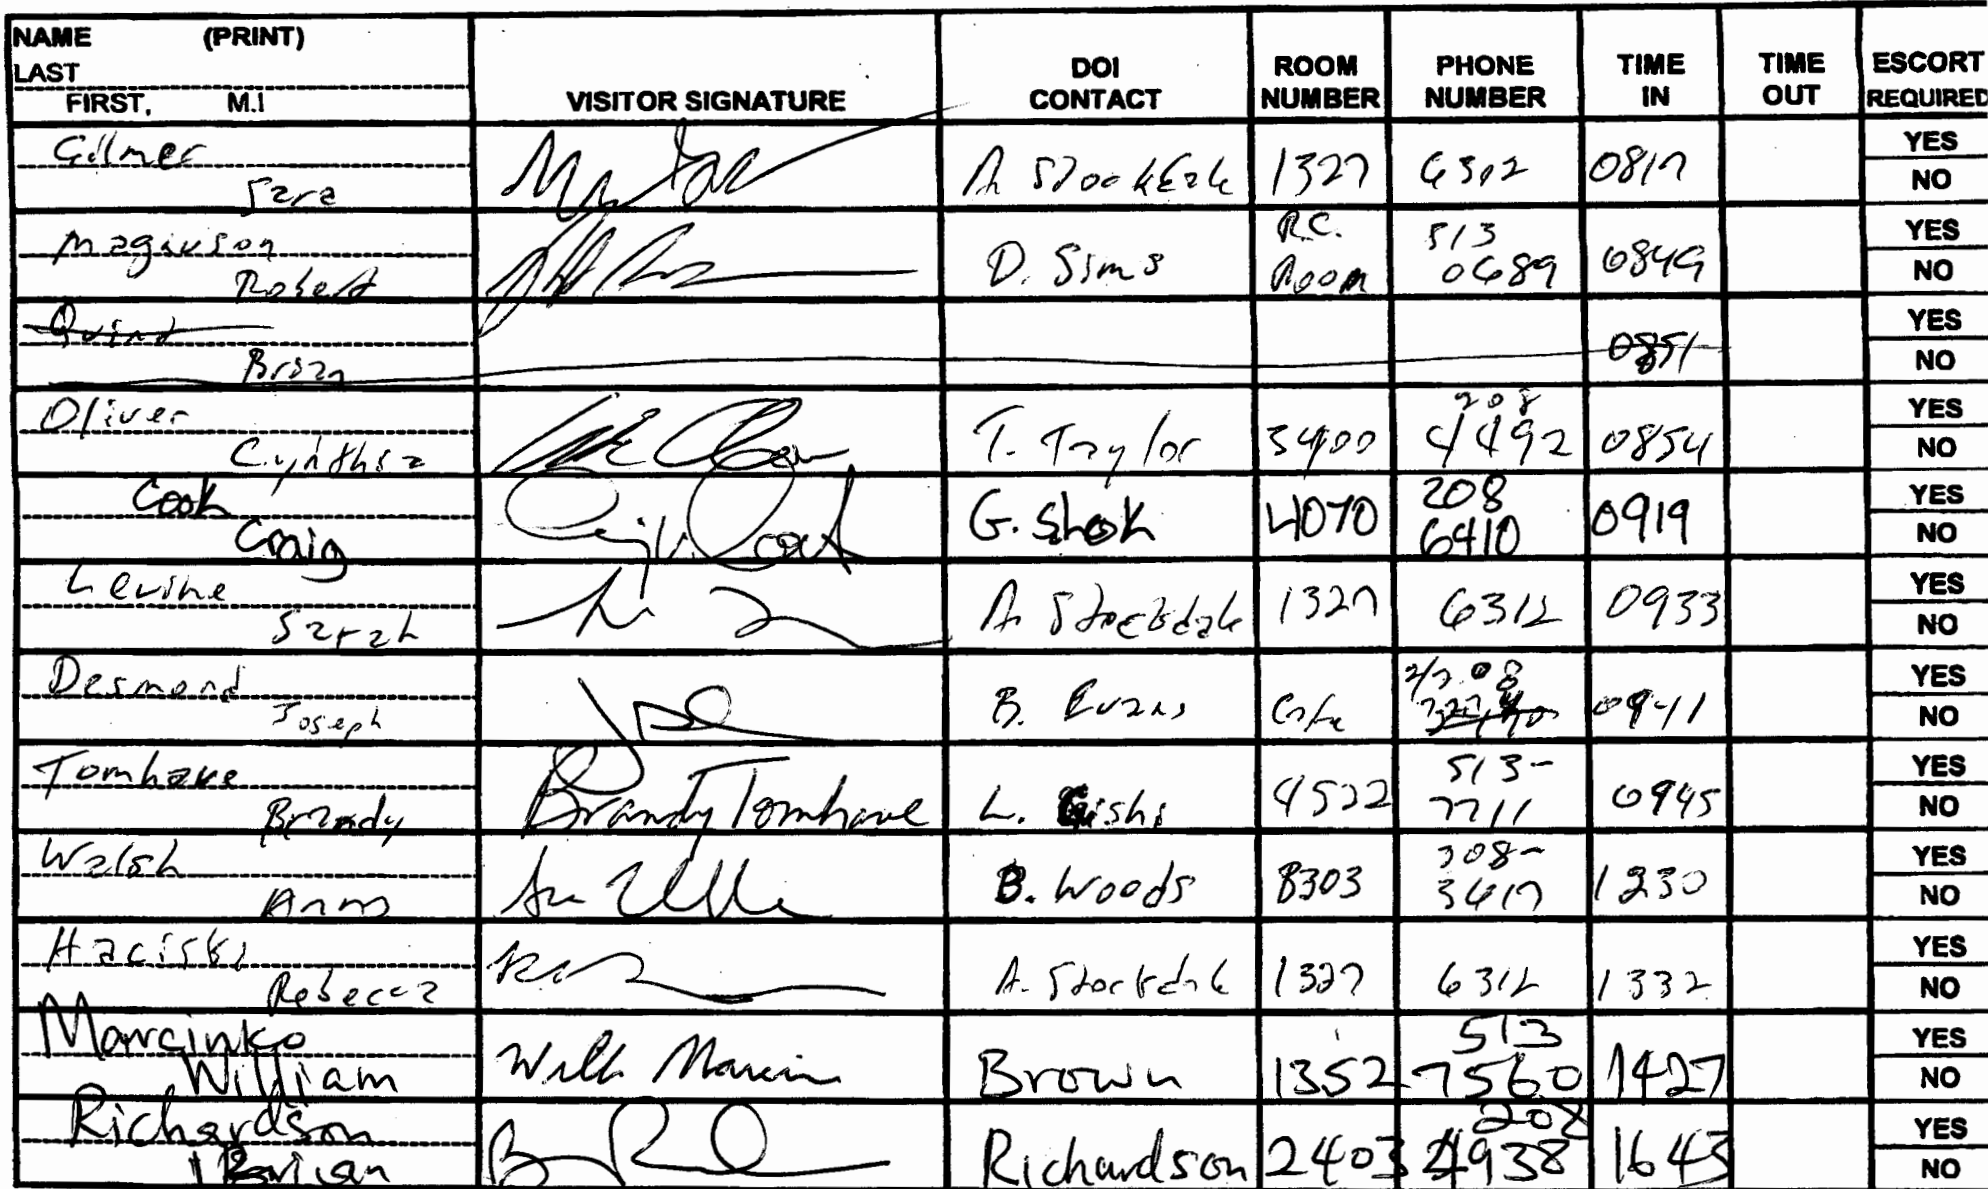 NAME (PRINT)
LAST
FIRST, M.I
VISITOR SIGNATURE
DOI CONTACT
ROOM NUMBER
PHONE NUMBER
TIME IN
TIME OUT
ESCORT REQUIRED
Gilmer
Sara
A. Stockdale 1327 6312 0817 YES
NO
Magnuson
Robert
D. Sims R.C. Room 513 0689 0849 YES
NO
Brian
0851 YES
NO
Oliver
Cynthia
T. Taylor 3400 208 4492 0854 YES
NO
Cook
Craig
G. Shok 4070 208 6410 0919 YES
NO
Levine
Sarah
A. Stockdale 1327 6312 0933 YES
NO
Desmond
Joseph
B. Evans 0941 YES
NO
Tomhave
Brandy
Brandy Tomhave L. 4522 513- 7711 0945 YES
NO
Walsh
Ann
B. Woods 8303 308- 3417 1230 YES
NO
Haciski
Rebecca
A. Stockdale 1327 6312 1332 YES
NO
Marcinko
William
Brown 1352 513 7560 1427 YES
NO
Richardson
Richardson 2403 208 4938 1643 YES
NO